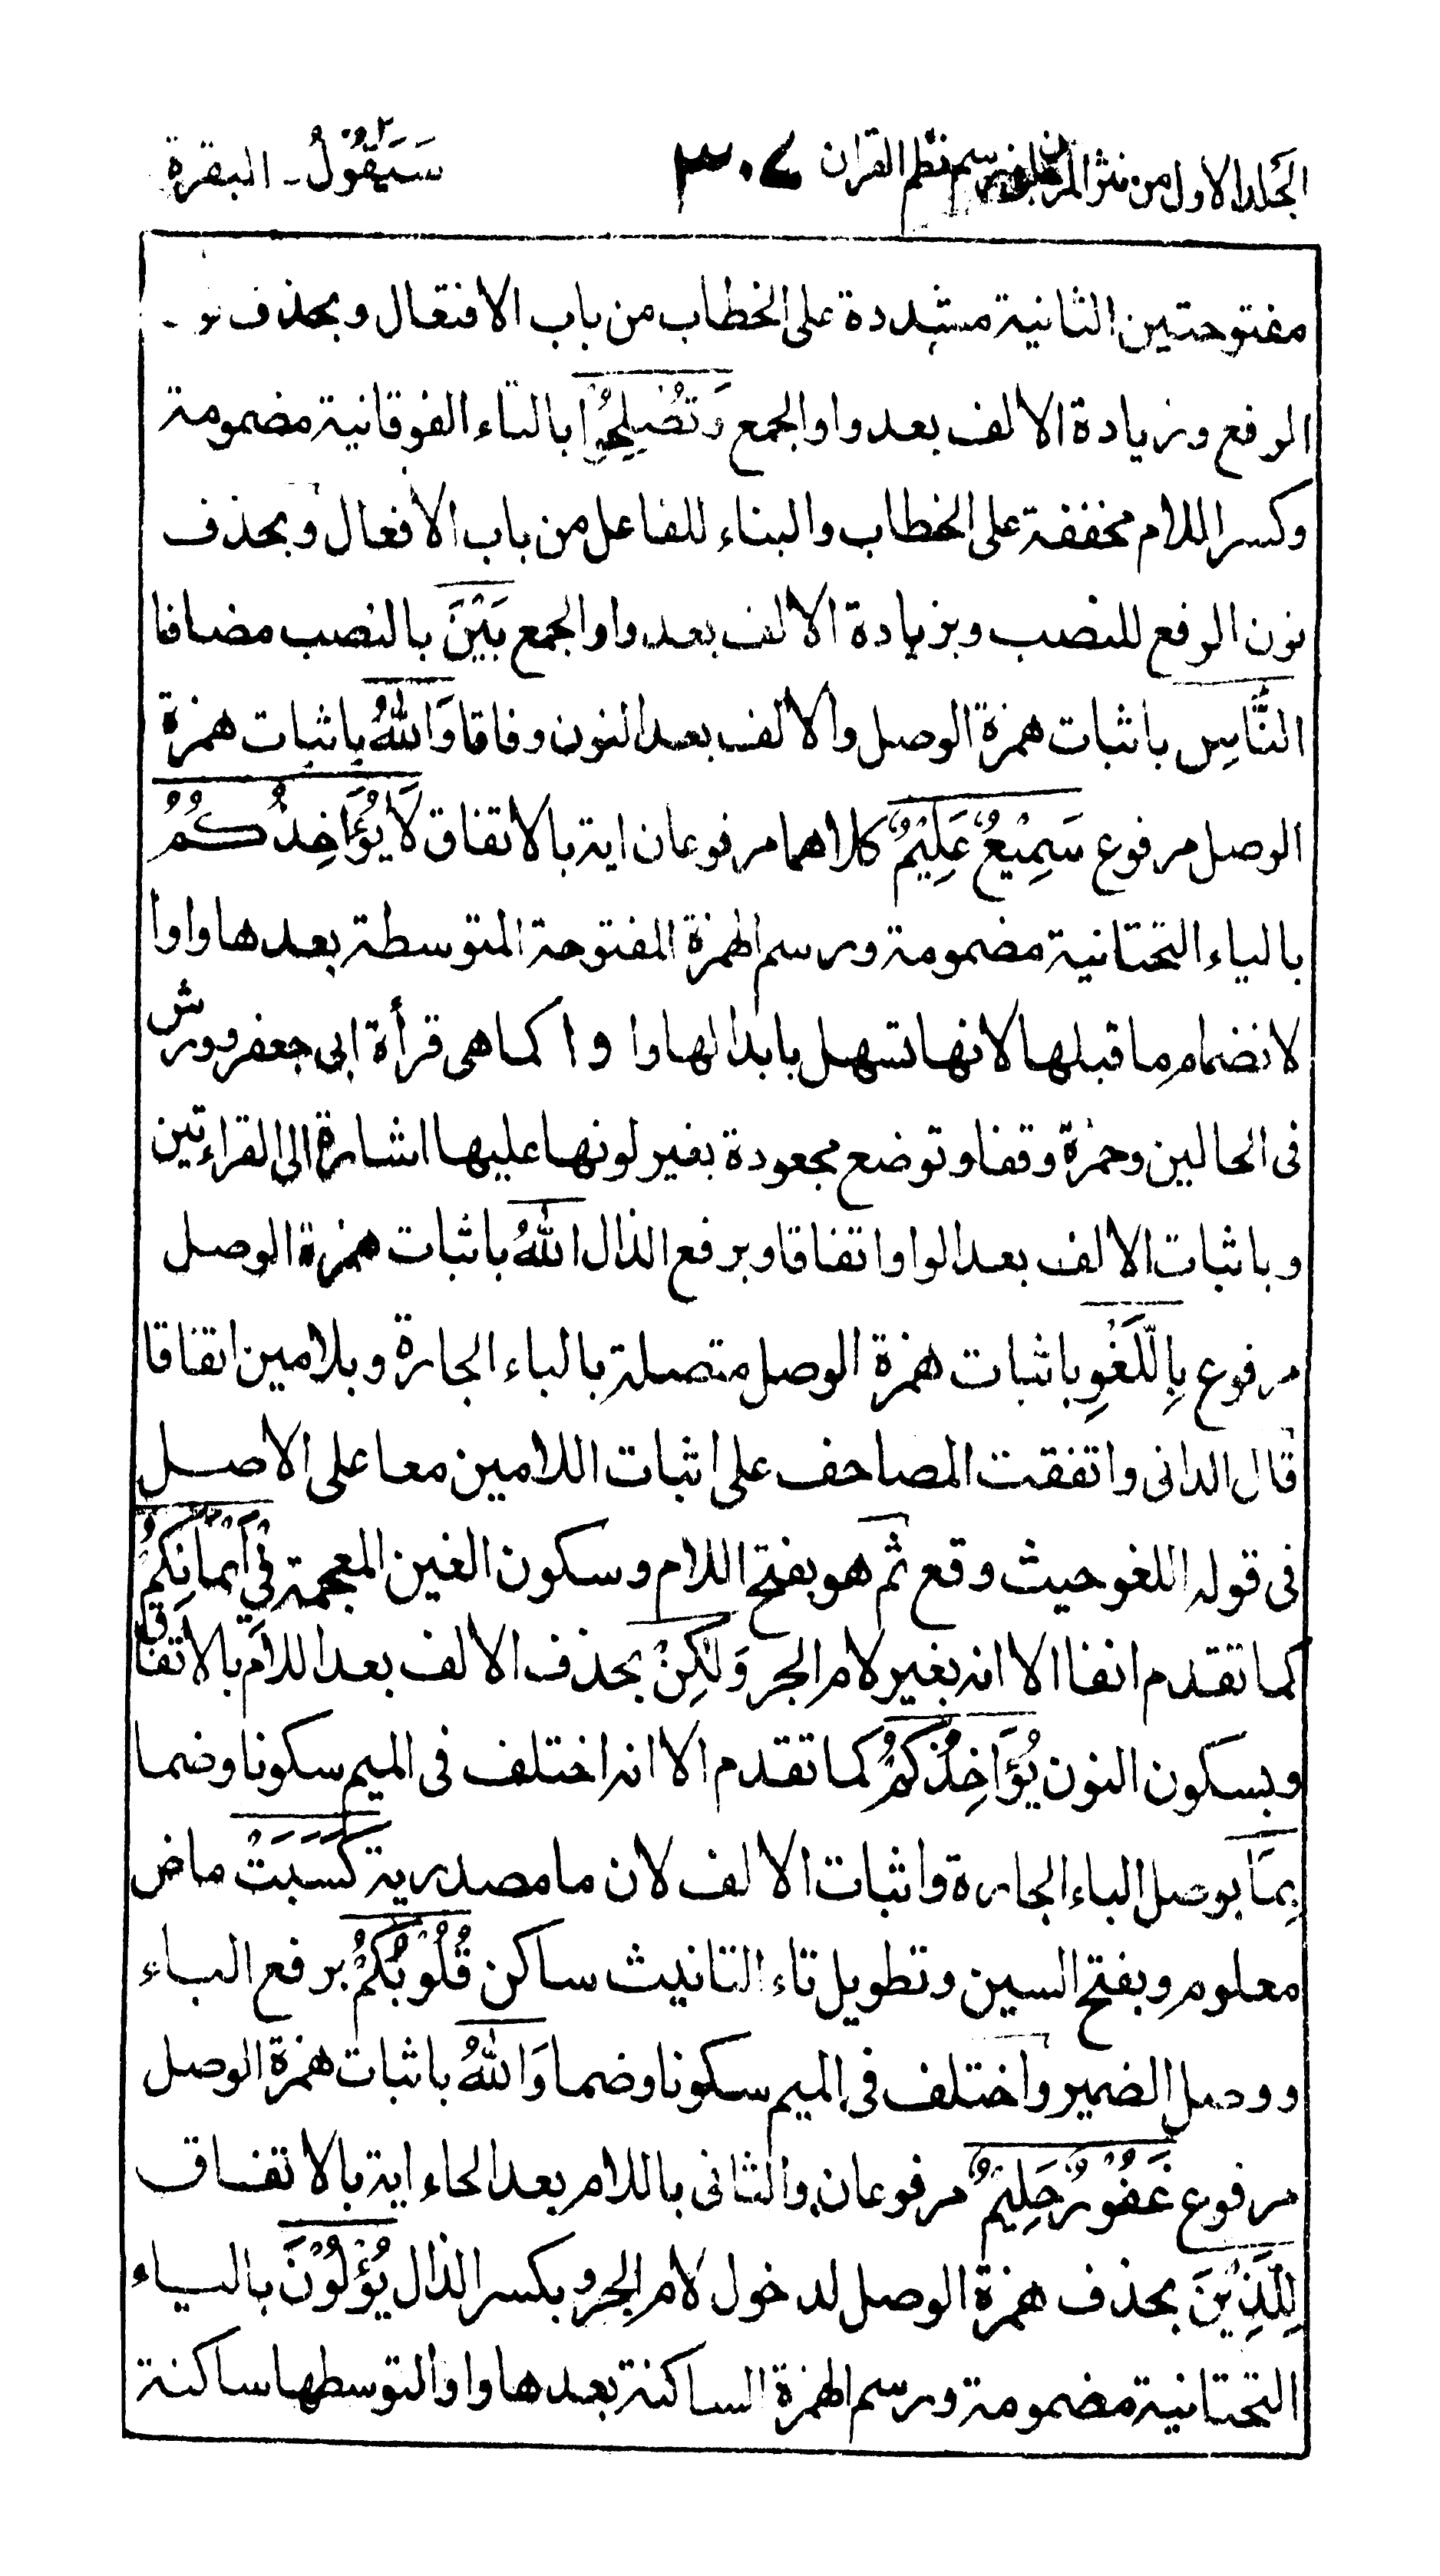 الجلد الاول من نثر المرجان فى رسم نظم القران ٣٠٧ سَيَقُوْلُ ـ البقرة ٢
مفتوحتين الثانية مشددة على الخطاب من باب الافتعال وبحذف
الرفع وزيادة الالف بعد واو الجمع وَتُصْلِحُوْا بالتاء الفوقانية مضمومة
وكسر اللام مخففة على الخطاب والبناء للفاعل من باب الافعال وبحذف
نون الرفع للنصب وبزيادة الالف بعد واو الجمع بَيْنَ بالنصب مضافا
النَّاسِ باثبات همزة الوصل والالف بعد النون وفاقا وَاللّٰهُ باثبات همزة
الوصل مرفوع سَمِيْعٌ عَلِيْمٌ كلاهما مرفوعان اية بالاتفاق لَا يُؤَاخِذُكُمُ
بالياء التحتانية مضمومة ورسم الهمزة المفتوحة المتوسطة بعدها واوا
لانضمام ما قبلها لانها تسهل بابدالها واوا كما هى قرأة ابى جعفر وورش
فى الحالين وحمزة وقفا وتوضع مجعودة بغير لونها عليها اشارة الى القراءتين
وباثبات الالف بعد الواو اتفاقا وبرفع الذال اللّٰهُ باثبات همزة الوصل
مرفوع بِاللَّغْوِ باثبات همزة الوصل متصلة بالباء الجارة وبلامين اتفاقا
قال الدانى واتفقت المصاحف على اثبات اللامين معا على الاصل
فى قوله اللغو حيث وقع ثم هو بفتح اللام وسكون الغين المعجمة فِىْ اَيْمَانِكُمْ
كما تقدم انفا الا انه بغير لام الجر وَلٰكِنْ بحذف الالف بعد اللام بالاتفاق
وبسكون النون يُؤَاخِذُكُمْ كما تقدم الا انه اختلف فى الميم سكونا وضما
بِمَا بوصل الباء الجارة واثبات الالف لان ما مصدرية كَسَبَتْ ماض
معلوم وبفتح السين وتطويل تاء التانيث ساكن قُلُوْبُكُمْ برفع الباء
ووصل الضمير واختلف فى الميم سكونا وضما وَاللّٰهُ باثبات همزة الوصل
مرفوع غَفُوْرٌ حَلِيْمٌ مرفوعان والثانى باللام بعد الحاء اية بالاتفاق
لِلَّذِيْنَ بحذف همزة الوصل لدخول لام الجر وبكسر الذال يُؤْلُوْنَ بالياء
التحتانية مضمومة ورسم الهمزة الساكنة بعدها واوا لتوسطها ساكنة